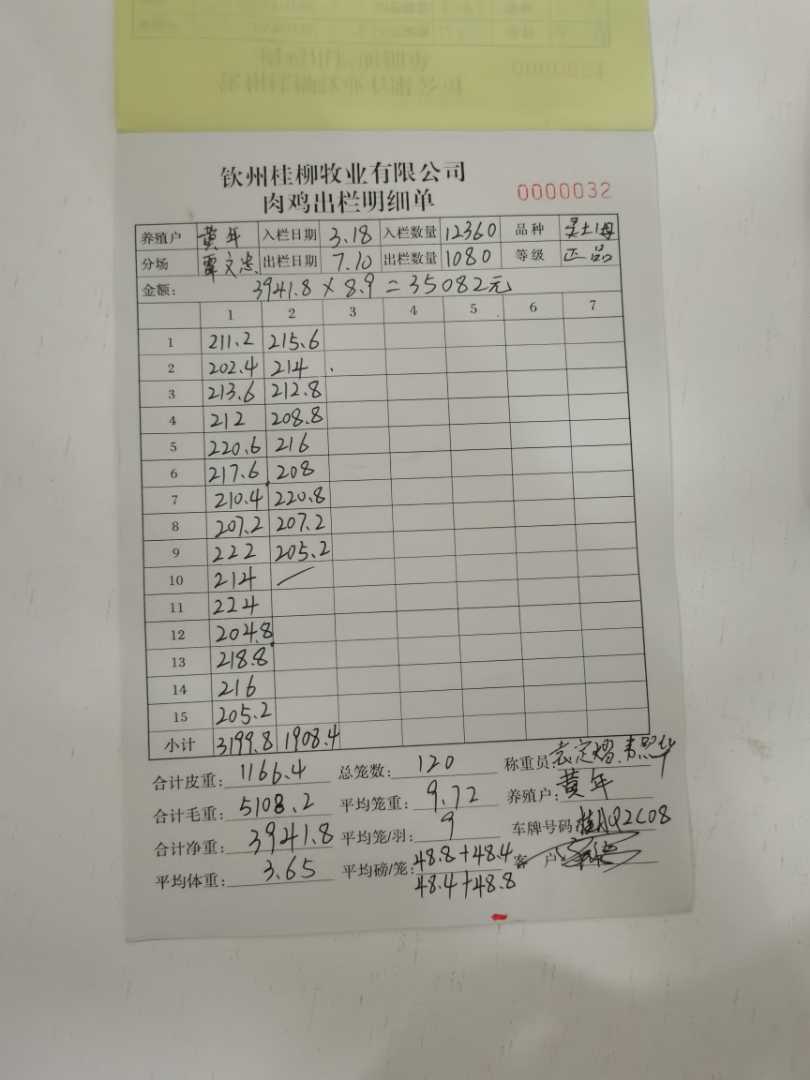 钦州桂柳牧业有限公司
肉鸡出栏明细单 0000032
养殖户 黄年 入栏日期 3.18 入栏数量 12360 品种
分场 覃文忠 出栏日期 7.10 出栏数量 1080 等级 正品
金额: 3941.8 × 8.9 = 35082元
1 2 3 4 5 6 7
1 211.2 215.6
2 202.4 214
3 213.6 212.8
4 212 208.8
5 220.6 216
6 217.6 208
7 210.4 220.8
8 207.2 207.2
9 222 205.2
10 214 /
11 224
12 204.8
13 218.8
14 216
15 205.2
小计 3199.8 1908.4
合计皮重: 1166.4 总笼数: 120 称重员:
合计毛重: 5108.2 平均笼重: 9.72 养殖户: 黄年
合计净重: 3941.8 平均笼/羽: 9 车牌号码
平均体重: 3.65 平均磅/笼: 48.8+48.4 客户
48.4+48.8